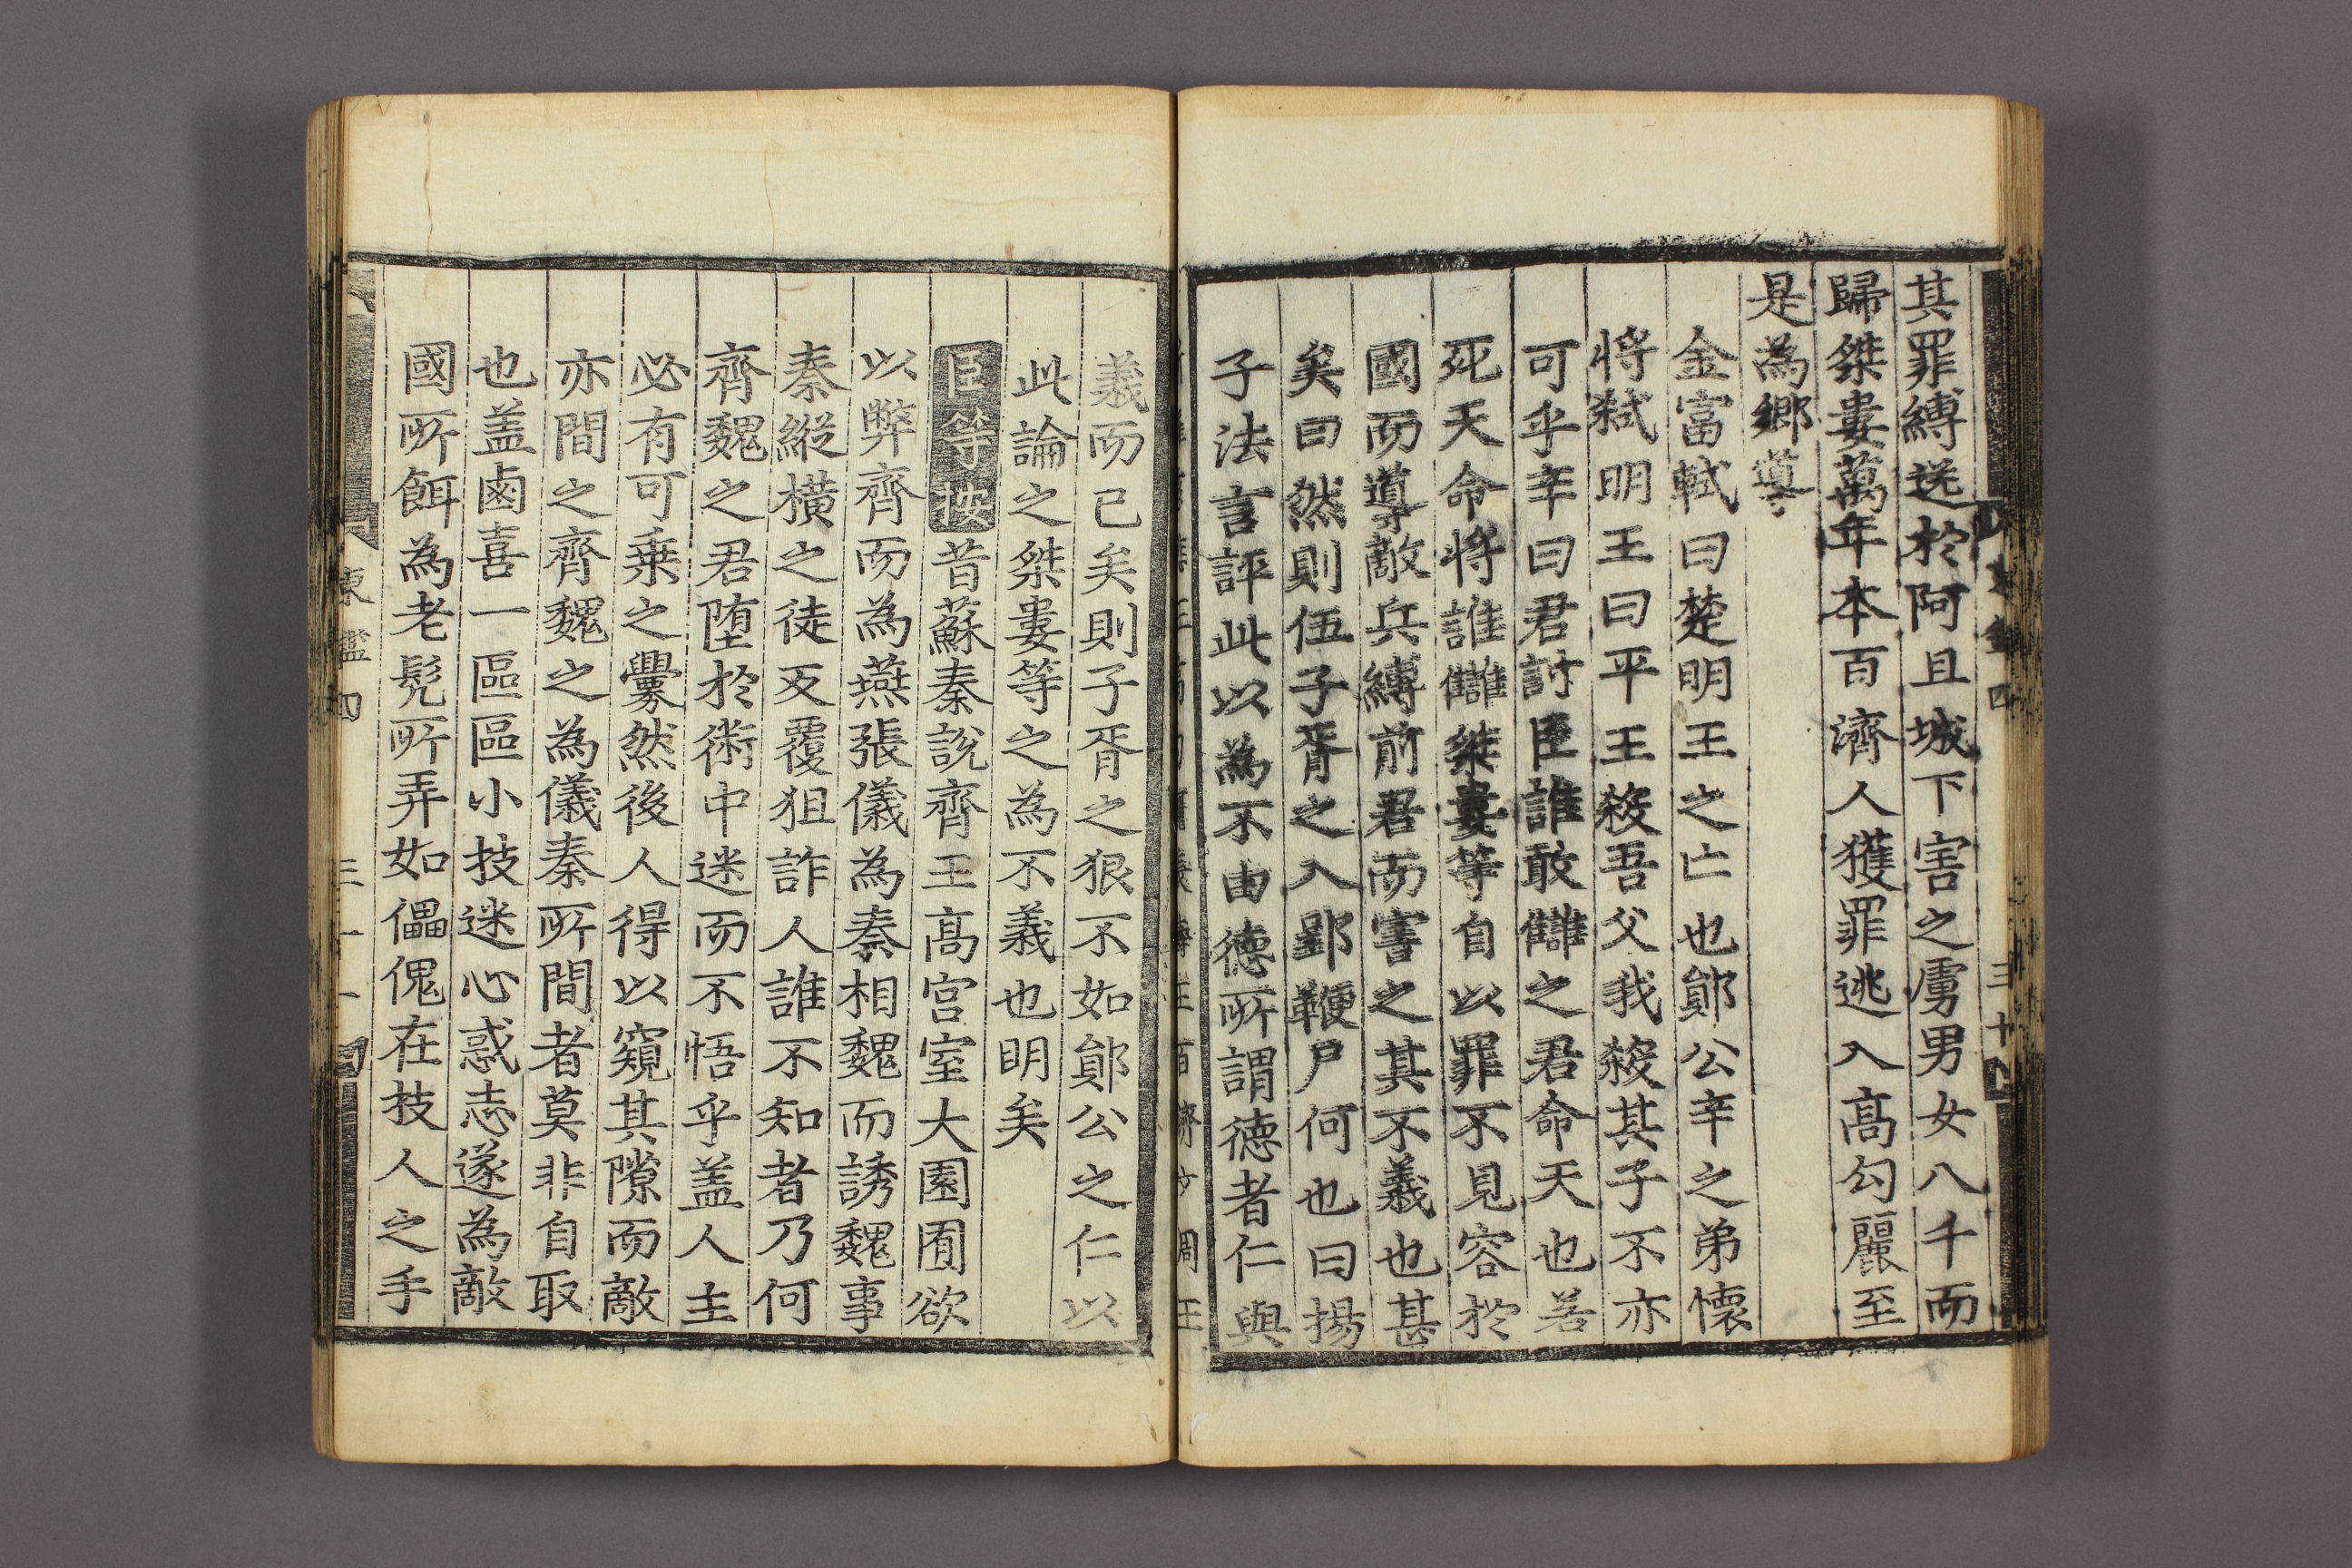 其罪縛送於阿且城下害之虜男女八千而
歸桀婁萬年本百濟人獲罪逃入高勾麗至
是為鄉導
金富軾曰楚明王之亡也鄖公辛之弟懷
將弑明王曰平王殺吾父我殺其子不亦
可乎辛曰君討臣誰敢讎之君命天也若
死天命將誰讎桀婁等自以罪不見容於
國而導敵兵縛前君而害之其不義也甚
矣曰然則伍子胥之入郢鞭尸何也曰揚
子法言評此以為不由德所謂德者仁與
義而已矣則子胥之狠不如鄖公之仁以
此論之桀婁等之為不義也明矣
臣等按昔蘇秦說齊王高宮室大園囿欲
以弊齊而為燕張儀為秦相魏而誘魏事
秦縱橫之徒反覆狙詐人誰不知者乃何
齊魏之君堕於術中迷而不悟乎盖人主
必有可乗之釁然後人得以窺其隙而敵
亦間之齊魏之為儀秦所間者莫非自取
也盖鹵喜一區區小技迷心惑志遂為敵
國所餌為老髡所弄如儡傀在技人之手
東鑑四
三十一